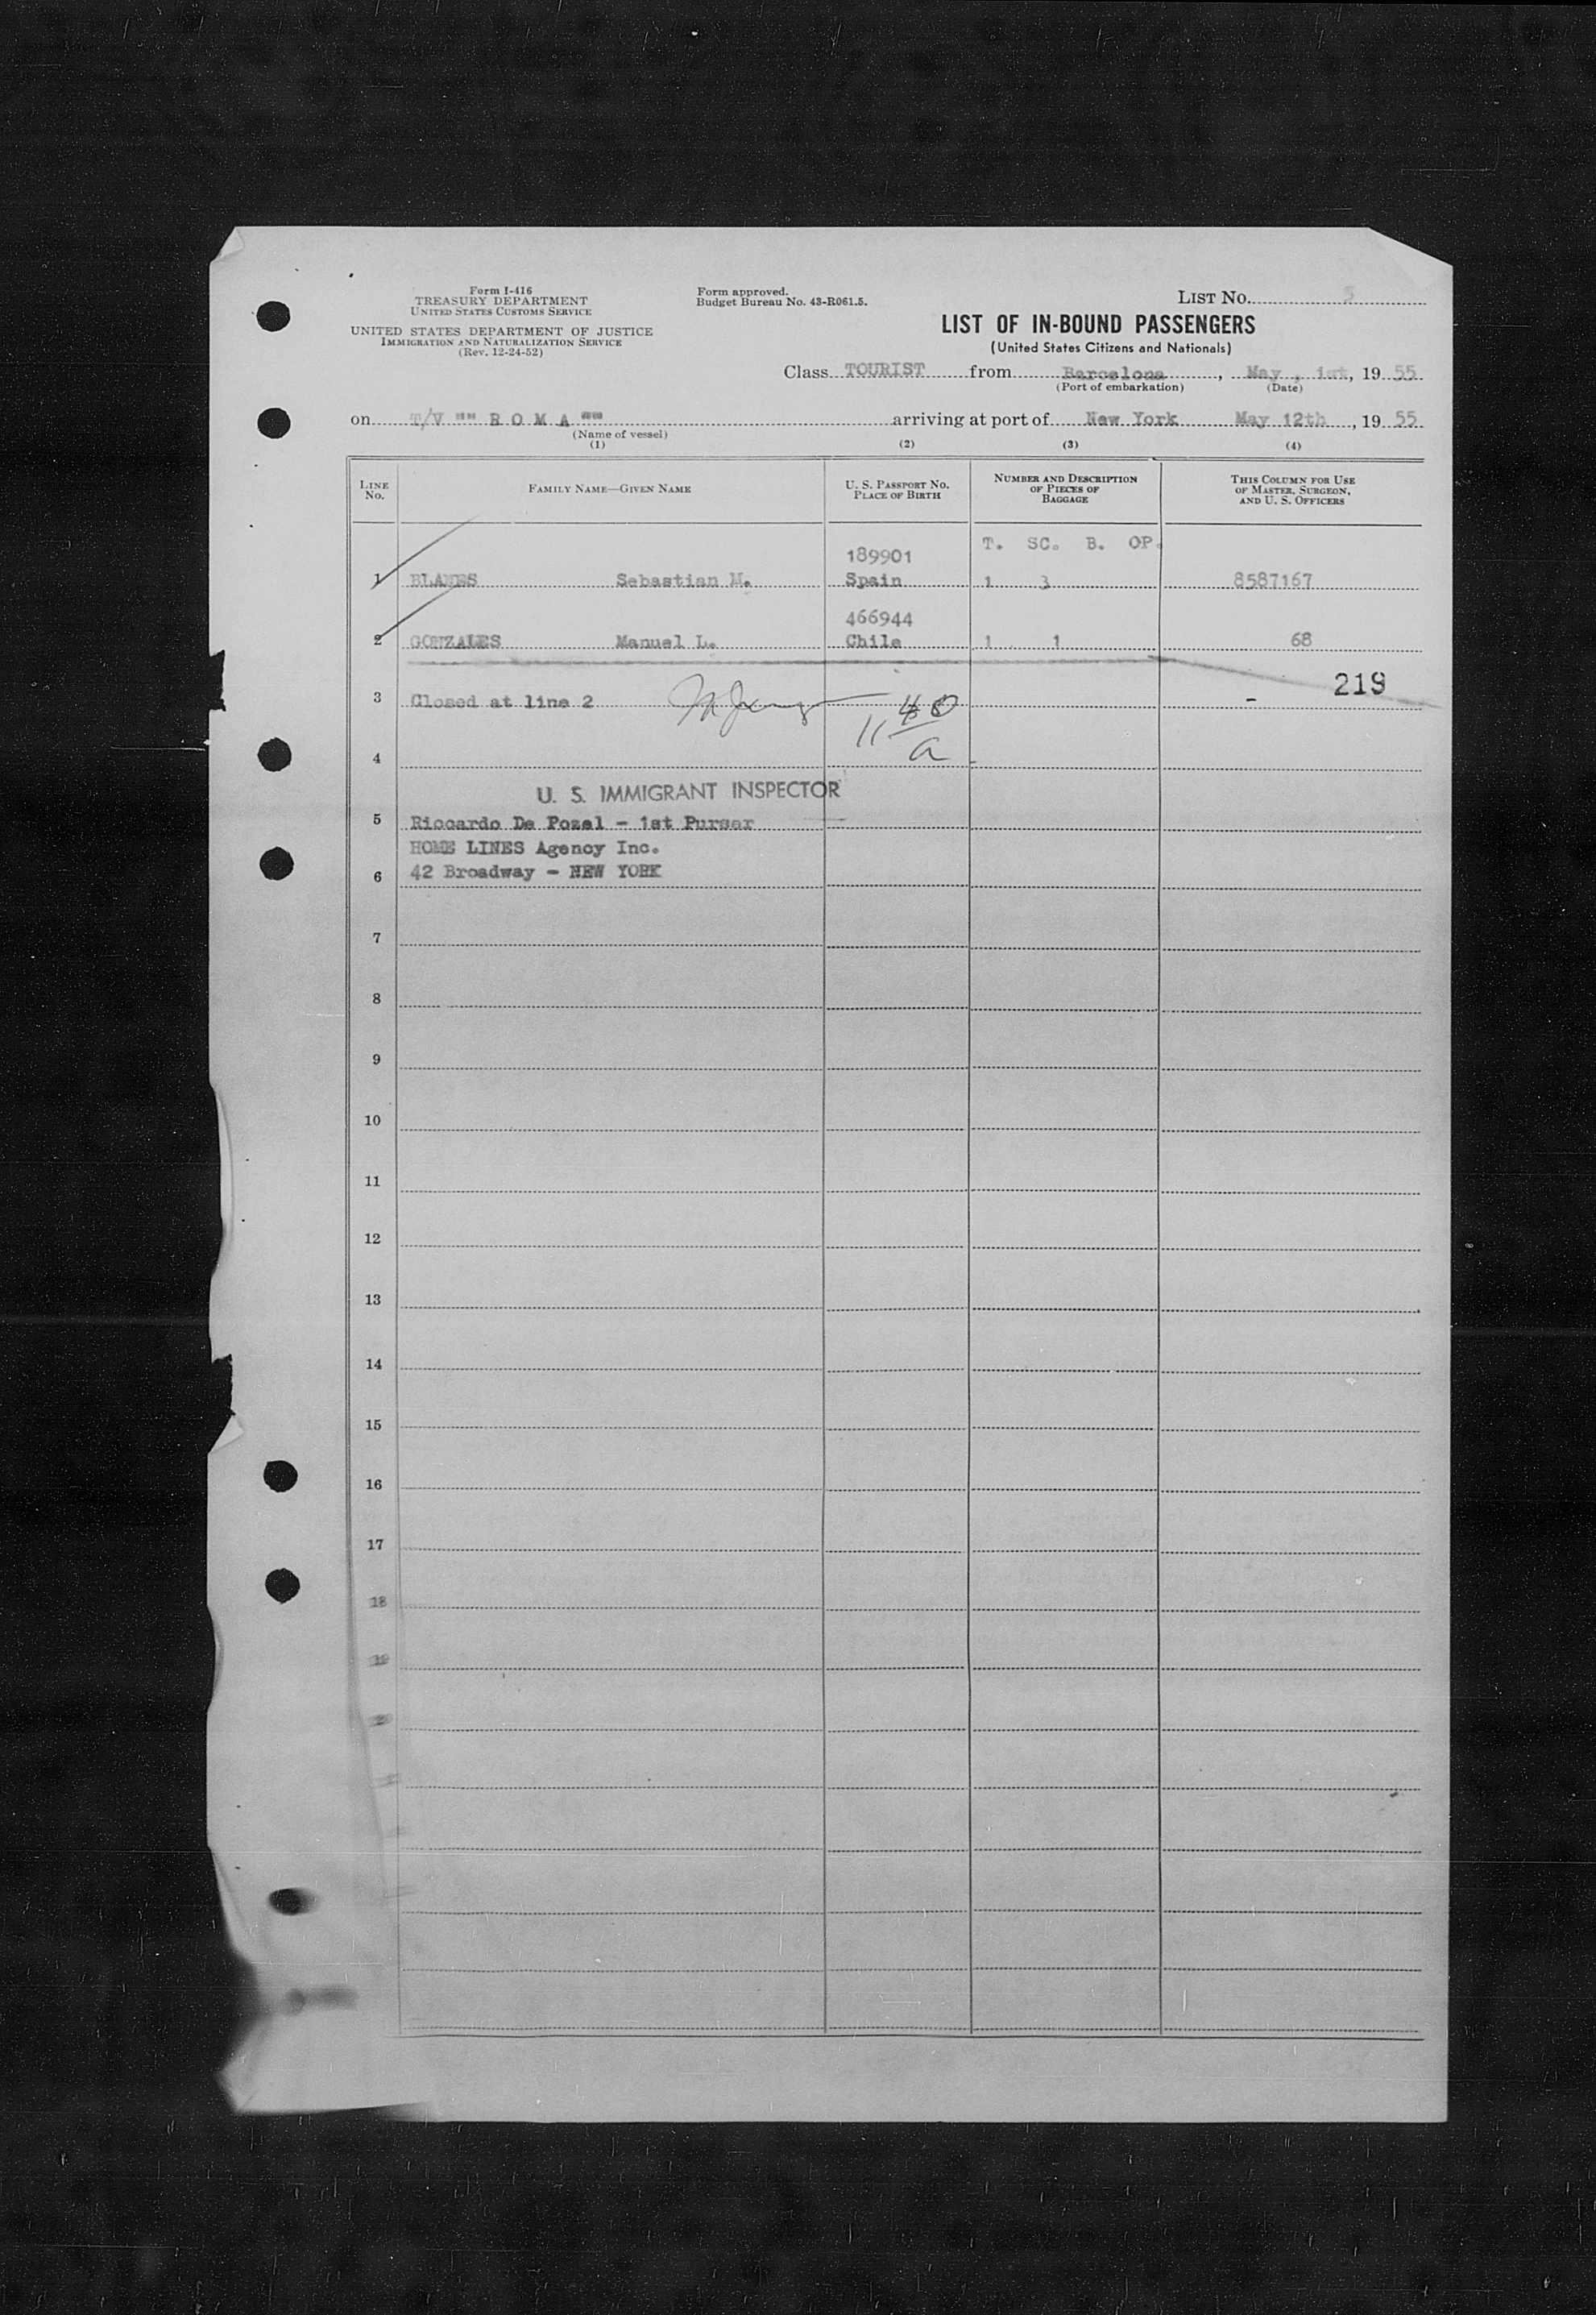 Form I-416
TREASURY DEPARTMENT
UNITED STATES CUSTOMS SERVICE
UNITED STATES DEPARTMENT OF JUSTICE
IMMIGRATION AND NATURALIZATION SERVICE
(Rev. 12-24-52)
Form approved.
Budget Bureau No. 43-R061.5.
LIST No. 5
LIST OF IN-BOUND PASSENGERS
(United States Citizens and Nationals)
Class TOURIST from Barcelona, May, 1st, 19 55
(Port of embarkation) (Date)
on T/V "" R O M A "" arriving at port of New York May 12th, 19 55
(Name of vessel)
(1) (2) (3) (4)
LINE No. FAMILY NAME—GIVEN NAME U. S. PASSPORT No. PLACE OF BIRTH NUMBER AND DESCRIPTION OF PIECES OF BAGGAGE THIS COLUMN FOR USE OF MASTER, SURGEON, AND U. S. OFFICERS
T. SC. B. OP.
189901
1 BLANES Sebastian M. Spain 1 3 8587167
466944
2 GONZALES Manuel L. Chile 1 1 68
219
3 Closed at line 2 -
11
a
4
U. S. IMMIGRANT INSPECTOR
5 Riccardo De Pozel - 1st Purser
HOME LINES Agency Inc.
6 42 Broadway - NEW YORK
7
8
9
10
11
12
13
14
15
16
17
18
19